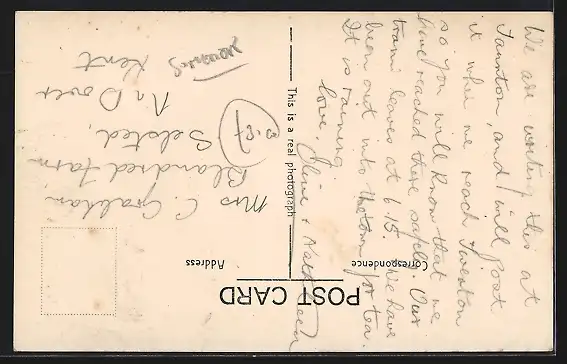 POST CARD
Correspondence
Address
This is a real photograph
We are writing this at
Taunton, and will post
it when we reach
so you will know that we
have reached there safely. Our
train leaves at 6.15. We have
been out into the town for tea.
It is raining
love, + Kathleen
Mrs C.
Farm
Selsted,
Nr Dover
Kent